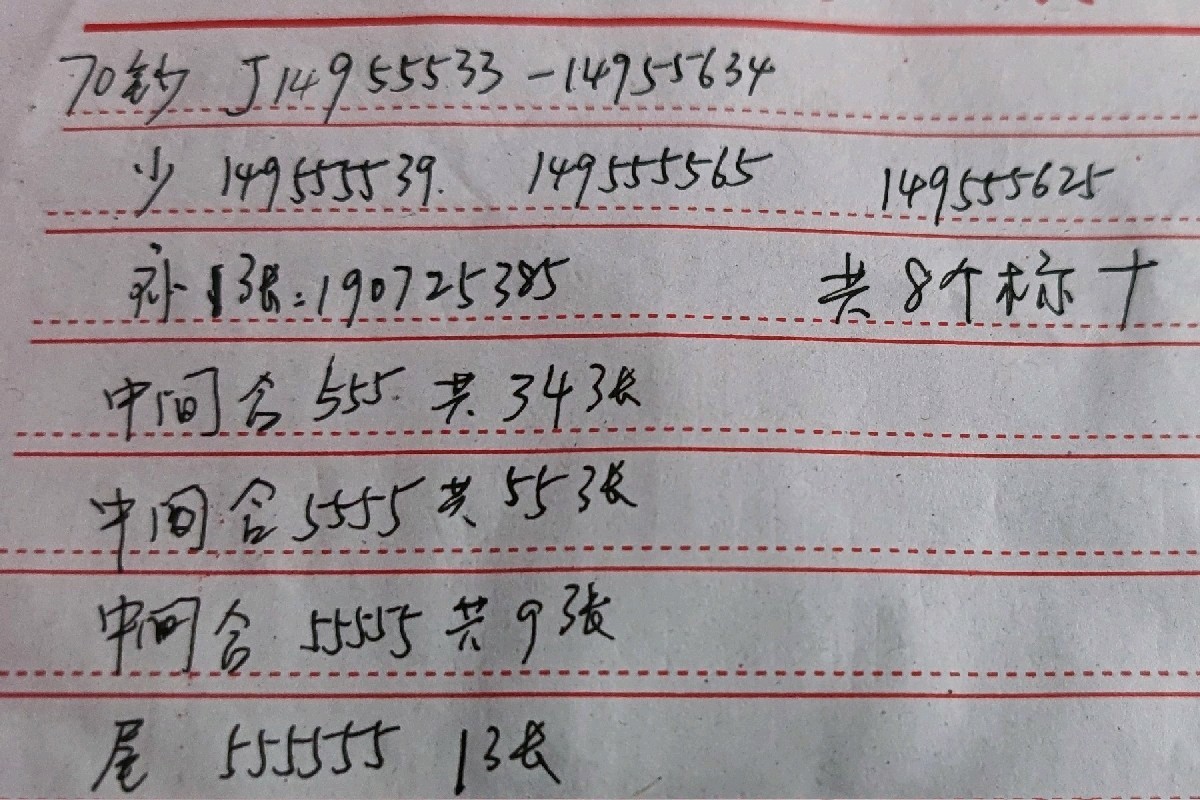 70钞 J14955533-14955634
少 149555539. 149555565 149555625
补1张:190725385 共8个标十
中间含555 共34张
中间含5555共55张
中间含 55555共9张
尾 555555 1张